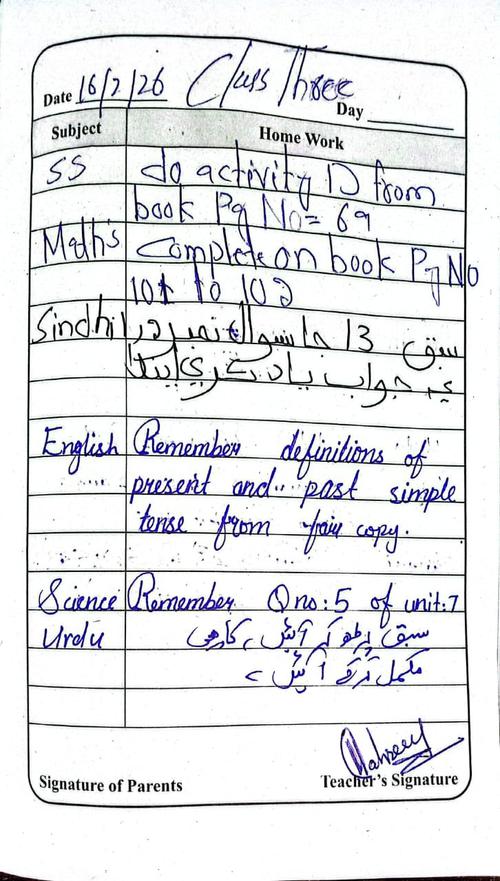 Date 16/2/26 Class Three
Day
Subject Home Work
SS do activity D from
book Pg No= 69
Math's Complete on book Pg No
101 to 102
Sindhi سبق 13 جا سوال نمبر
جواب ياد ڪري
English Remember definitions of
present and past simple
tense from fair copy.
Science Remember Q no: 5 of unit: 7
Urdu سبق پڑھ کر آئیں، کاپی
مکمل کرکے آئیں
Signature of Parents Teacher's Signature